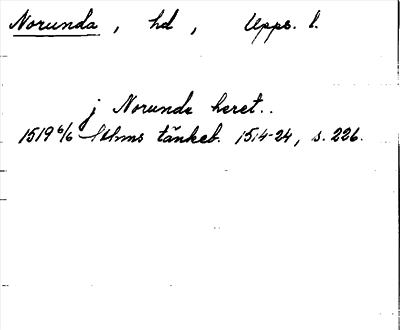 Norunda, hd, Upps. l.
j Norunde heret..
1519 6/6 Sthms tänkeb. 1514-24, s. 226.